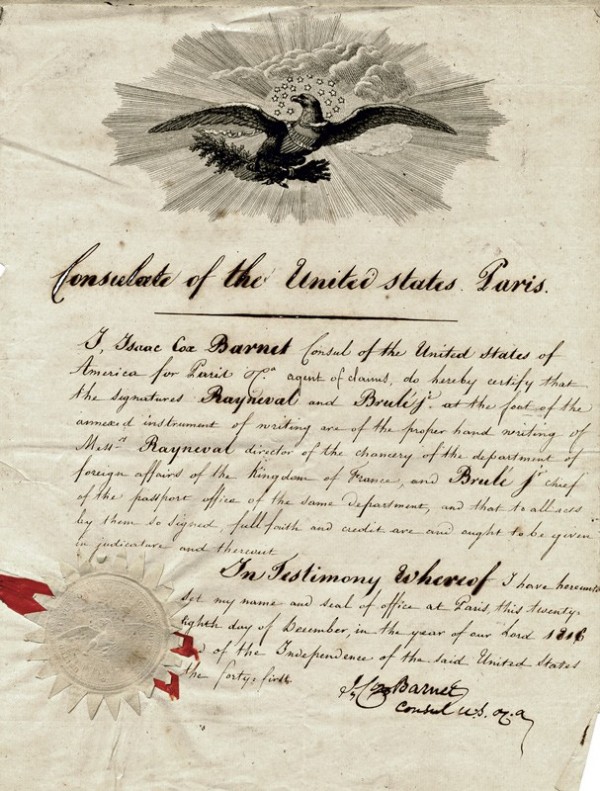 Consulate of the United states. Paris.
I, Isaac Cox Barnet Consul of the United States of
America for Paris &ca agent of claims, do hereby certify that
the signatures Rayneval and Brulé jr. at the foot of the
annexed instrument of writing are of the proper hand writing of
Messrs Rayneval director of the chancery of the department of
foreign affairs of the Kingdom of France, and Brulé jr chief
of the passport office of the same department, and that to all acts
by them so signed, full faith and credit are and ought to be given
in judicature and thereout
In Testimony Whereof I have hereunto
set my name and seal of office at Paris, this twenty-
eighth day of December, in the year of our Lord 1816
of the Independence of the said United States
the forty-first
I. Cox Barnet
Consul U.S. &ca